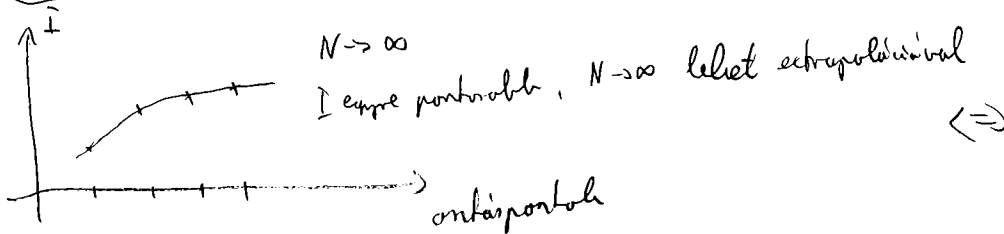 I
N → ∞
I egyre pontosabb, N → ∞ lehet extrapolációval
<=>
osztáspontok